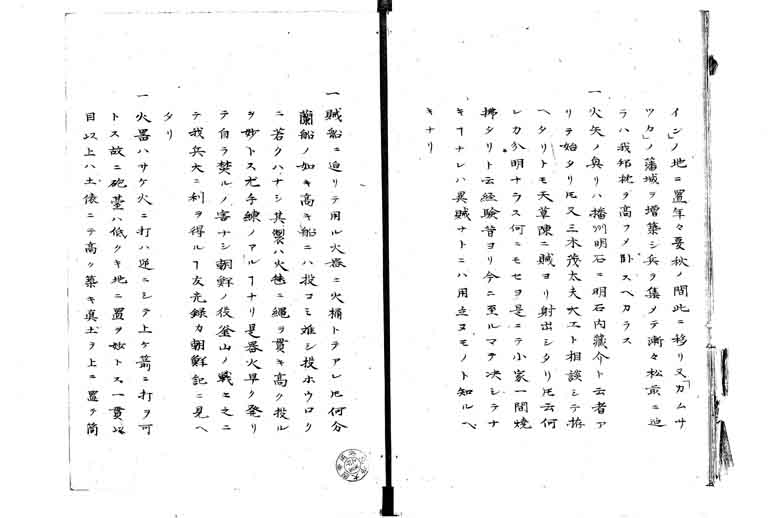 イン」ノ地ニ置年々夏秋ノ間此ニ移リ又「カムサ
ツカ」ノ藩城ヲ増築シ兵ヲ集メテ漸々松前ニ迫
ラハ我邦枕ヲ高フメ臥スヘカラス
一火矢ノ奥リハ播州明石ニ明石内藏介ト云者ア
リテ始タリ𪜈又三木茂太夫大工ト相談シテ拵
ヘタリトモ天草陳ニ賊ヨリ射出シタリ𪜈云何
レカ分明ナラス何ニモセヨ是ニテ小家一間燒
拂タリト云経驗昔ヨリ今ニ至ルマテ决シテナ
キヿナレハ異賊ナトニハ用立ヌモノト知ルヘ
キナリ
一賊船ニ迫リテ用ル火器ニ火桶トテアレ𪜈何分
蘭船ノ如キ高キ船ニハ投コミ难シ投ホウロク
ニ若クハナシ其製ハ火毬ニ縄ヲ貫キ高ク投ル
ヲ妙トス尤手練ノアルヿナリ是器火早ク発リ
テ自ラ焚ルノ害ナシ朝鮮ノ役釜山ノ戦ニ之ニ
テ我兵大ニ利ヲ得ルヿ友元録カ朝鮮記ニ見ヘ
タリ
一火器ハサケ火ニ打ハ逆ニシテ上ケ箭ニ打ヲ可
トス故ニ砲䑓ハ低クキ地ニ置ヲ妙トス一貫以
目以上ハ土俵ニテ高ク築キ真土ヲ上ニ置テ筒